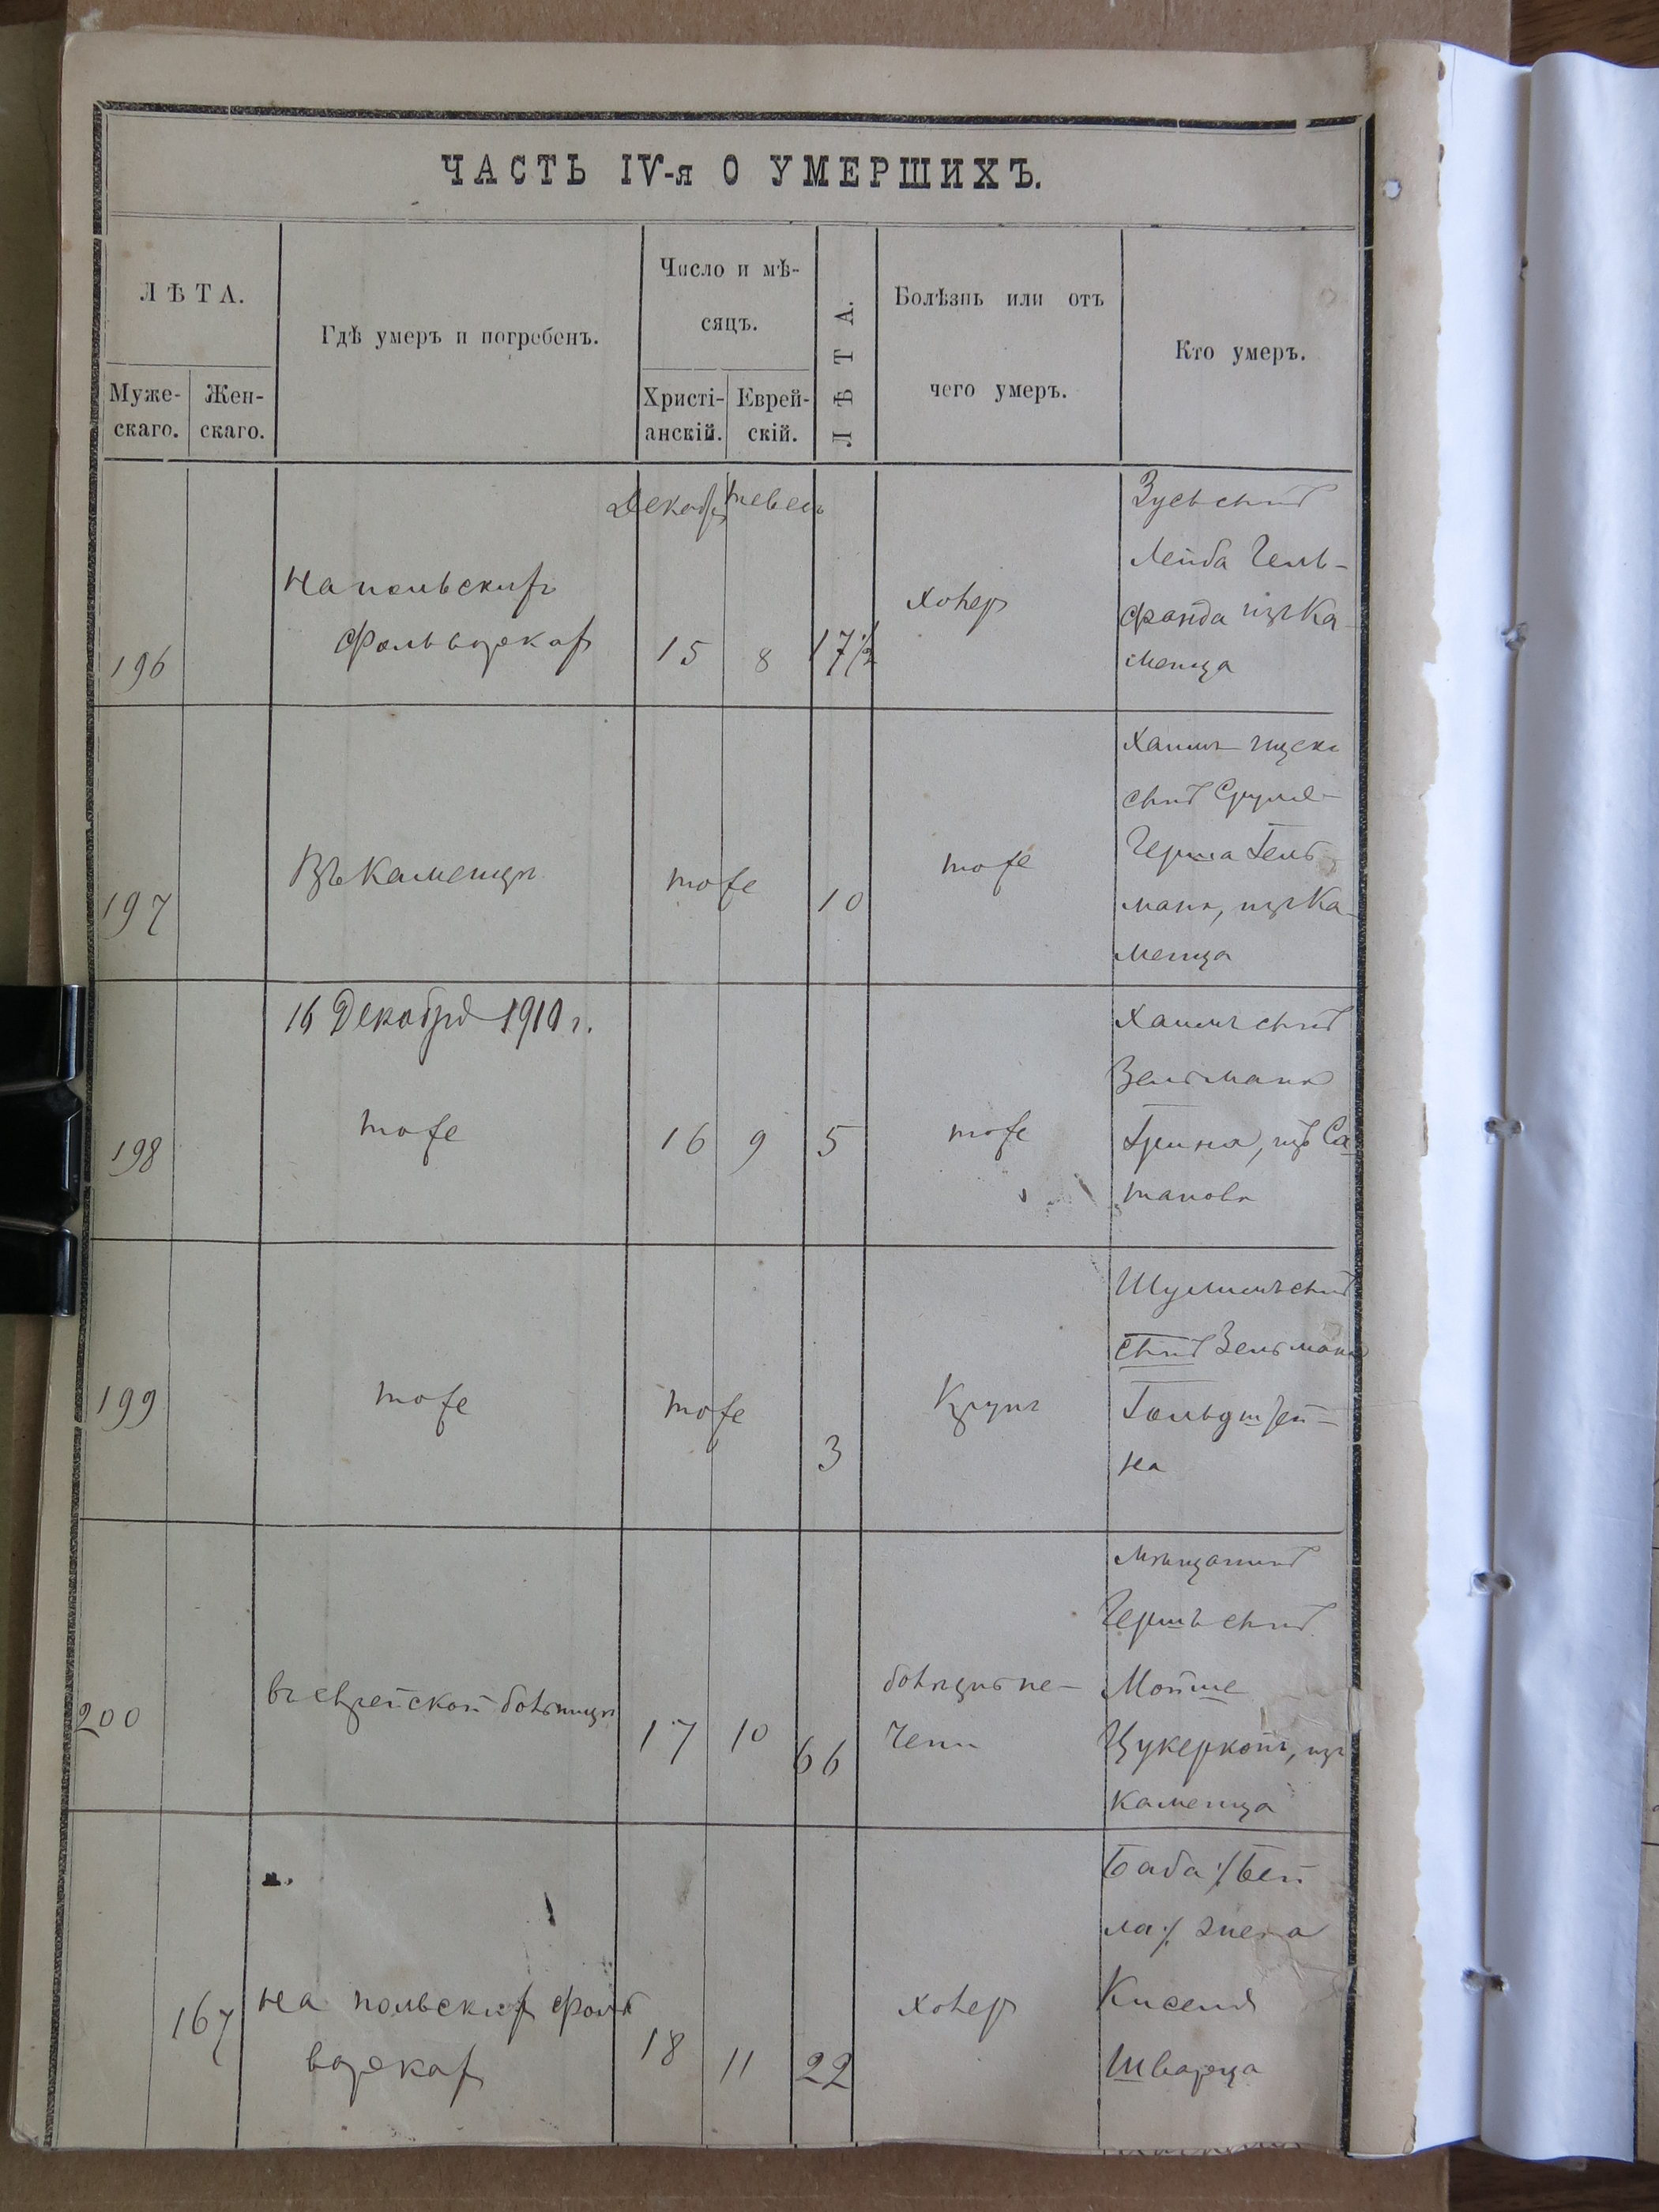 ЧАСТЬ IV-я О УМЕРШИХЪ.
ЛѢТА.
Муже-
скаго.
Жен-
скаго.
Гдѣ умеръ и погребенъ.
Число и мѣ-
сяцъ.
Христі-
анскій.
Еврей-
скій.
ЛѢТА.
Болѣзнь или отъ
чего умеръ.
Кто умеръ.
Декабрь
тевесъ
196
На польскихъ
фольваркахъ
15
8
17 1/2
холер
Зусь сынъ
Лейба Гель-
фанда изъ Ка-
менца
197
Въ Каменцѣ
тоже
10
тоже
Хаимъ
сынъ Сруля
Герша Гель
мана, изъ Ка-
менца
16 Декабря 1910 г.
198
тоже
16
9
5
тоже
Хаимъ сынъ
Зельмана
Грина, изъ Са
танова
199
тоже
тоже
3
Крупъ
сынъ Зельмана
Гольдштей-
на
200
въ еврейской больницѣ
17
10
66
пе-
чени
мѣщанинъ
Гершъ сынъ
Мойше
Цукеркопъ, изъ
Каменца
167
на польскихъ фоль
варкахъ
18
11
22
холер
Баба /: Бей
ла :/ жена
Киселя
Шварца